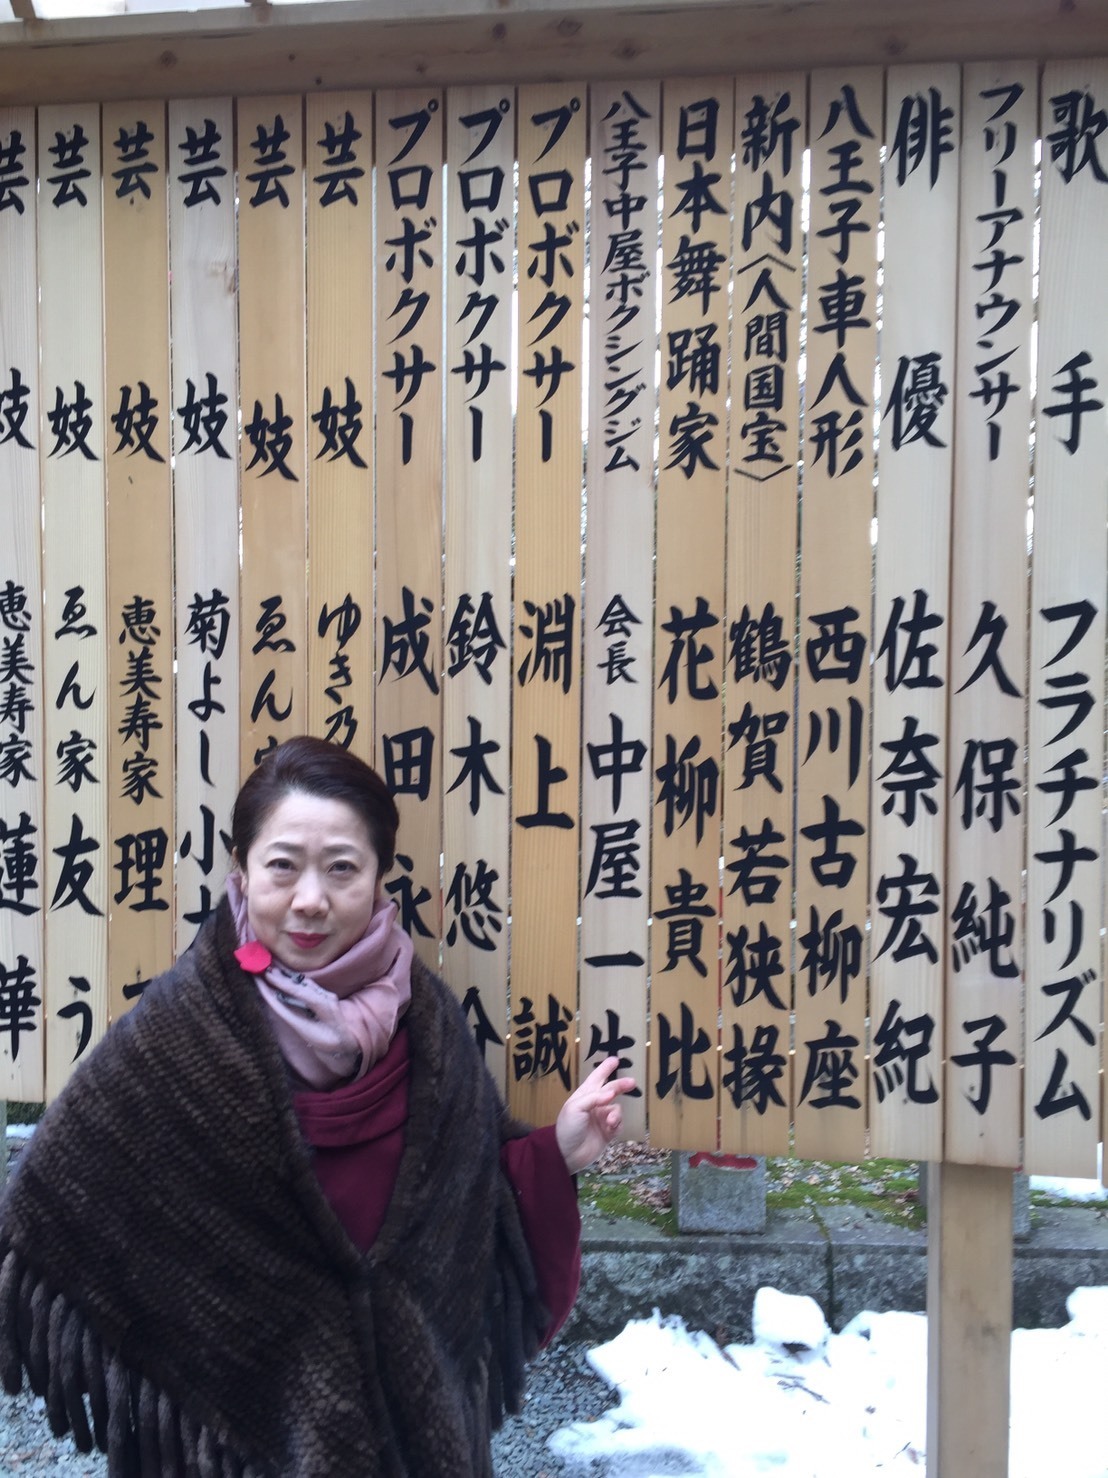 歌手 フラチナリズム
フリーアナウンサー 久保純子
俳優 佐奈宏紀
八王子車人形 西川古柳座
新内〈人間国宝〉 鶴賀若狭掾
日本舞踊家 花柳貴比
八王子中屋ボクシングジム 会長 中屋一生
プロボクサー 淵上誠
プロボクサー 鈴木悠介
プロボクサー 成田永
芸妓 ゆき乃
芸妓 ゑん家
芸妓 菊よし小
芸妓 恵美寿家 理
芸妓 ゑん家 友う
芸妓 恵美寿家 蓮華